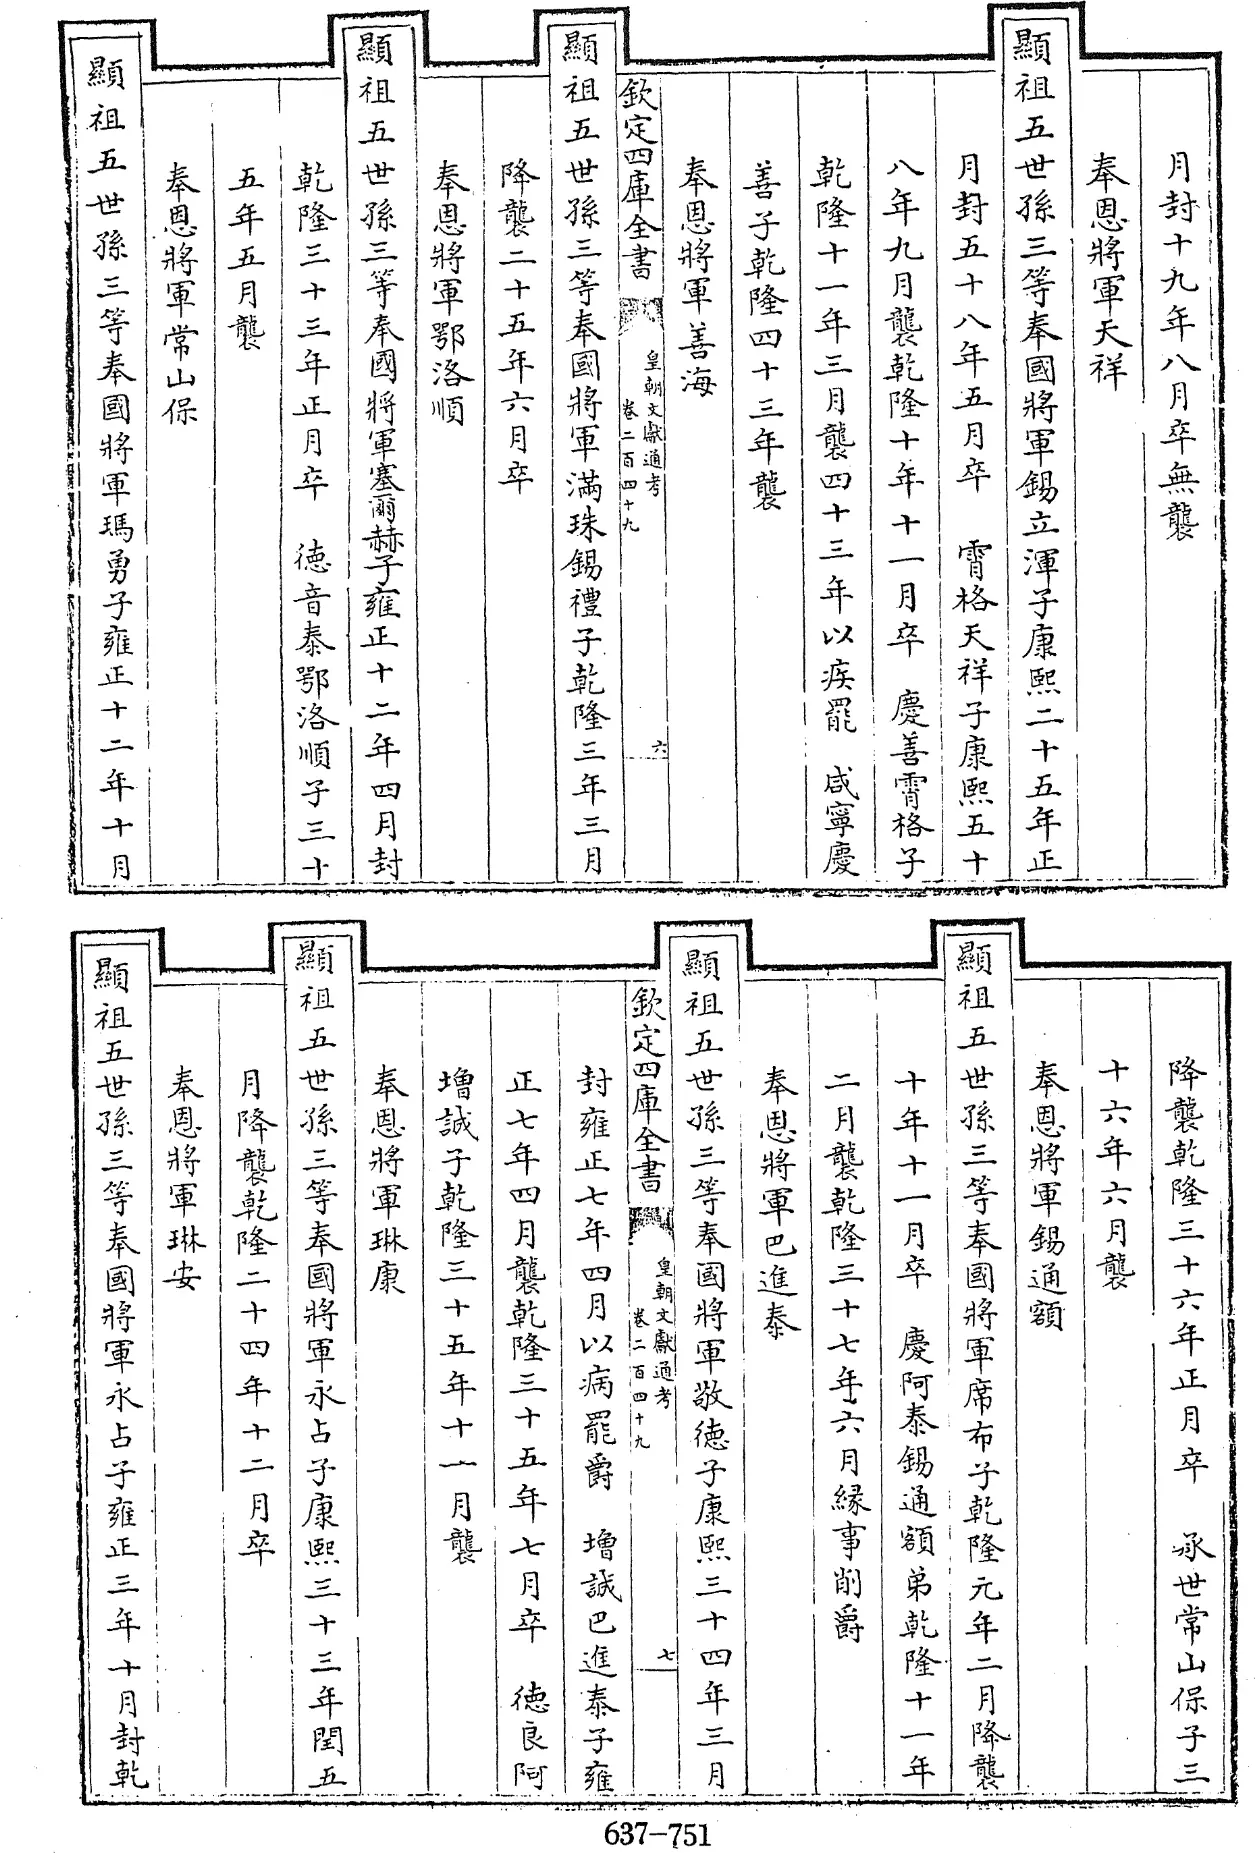 月封十九年八月卒無襲
奉恩將軍天祥
顯祖五世孫三等奉國將軍錫立渾子康熙二十五年正
月封五十八年五月卒　霄格天祥子康熙五十
八年九月襲乾隆十年十一月卒　慶善霄格子
乾隆十一年三月襲四十三年以疾罷　咸寧慶
善子乾隆四十三年襲
奉恩將軍善海
欽定四庫全書
皇朝文獻通考
卷二百四十九
六
顯祖五世孫三等奉國將軍滿珠錫禮子乾隆三年三月
降襲二十五年六月卒
奉恩將軍鄂洛順
顯祖五世孫三等奉國將軍塞爾赫子雍正十二年四月封
乾隆三十三年正月卒　德音泰鄂洛順子三十
五年五月襲
奉恩將軍常山保
顯祖五世孫三等奉國將軍瑪勇子雍正十二年十月
降襲乾隆三十六年正月卒　承世常山保子三
十六年六月襲
奉恩將軍錫通額
顯祖五世孫三等奉國將軍席布子乾隆元年二月降襲
十年十一月卒　慶阿泰錫通額弟乾隆十一年
二月襲乾隆三十七年六月縁事削爵
奉恩將軍巴進泰
顯祖五世孫三等奉國將軍敬德子康熙三十四年三月
封雍正七年四月以病罷爵　增誠巴進泰子雍
正七年四月襲乾隆三十五年七月卒　德良阿
增誠子乾隆三十五年十一月襲
奉恩將軍琳康
欽定四庫全書
皇朝文獻通考
卷二百四十九
七
顯祖五世孫三等奉國將軍永占子康熙三十三年閏五
月降襲乾隆二十四年十二月卒
奉恩將軍琳安
顯祖五世孫三等奉國將軍永占子雍正三年十月封乾
637-751